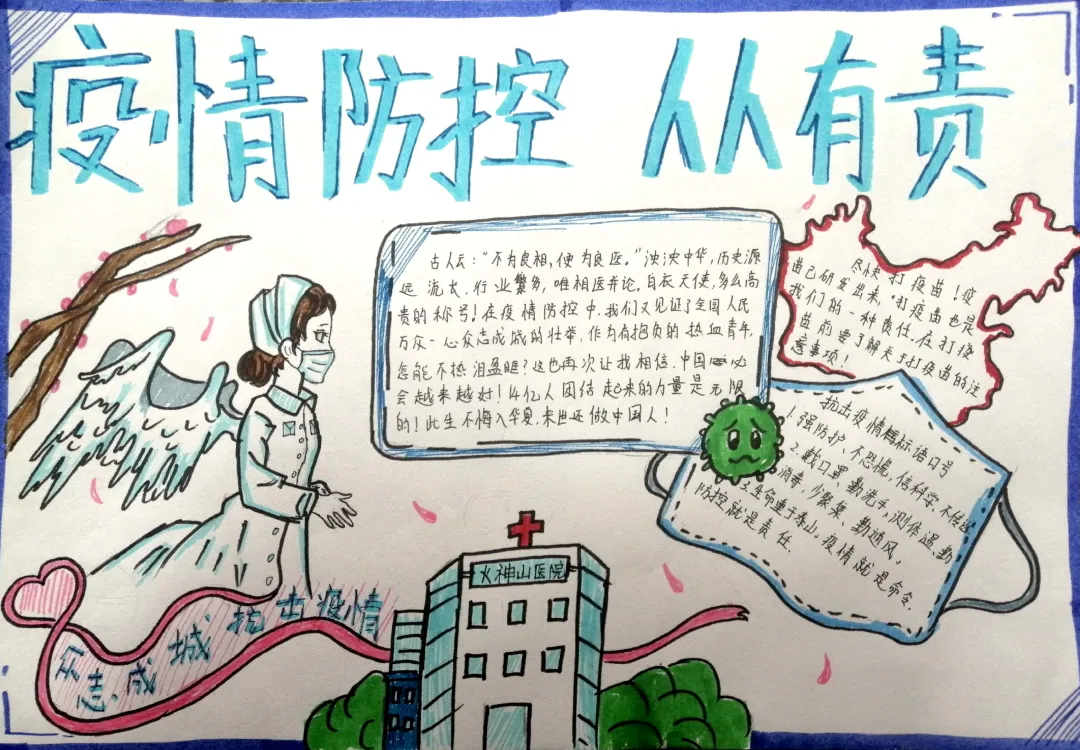 疫情防控 从有责
古人云：“不为良相，便为良医。”泱泱中华，历史源
远流长，行业繁多，唯相医并论。白衣天使，多么高
贵的称号！在疫情防控中，我们又见证了全国人民
万众一心众志成城的壮举，作为有抱负的热血青年，
怎能不热泪盈眶？这也再次让我相信，中国必
会越来越好！14亿人团结起来的力量是无限
的！此生不悔入华夏，来世还做中国人！
尽快打疫苗！疫
苗已研发出来，打疫苗也是
我们的一种责任，在打疫
苗前要了解关于打疫苗的注
意事项！
抗击疫情标语口号
1.强防护、不恐慌，信科学、不传谣
2.戴口罩、勤洗手，测体温、勤
消毒，少聚集、勤通风。
3.生命重于泰山。疫情就是命令，
防控就是责任.
火神山医院
众志成城 抗击疫情